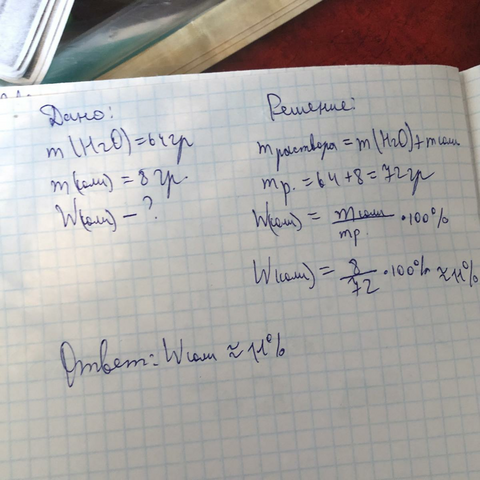 Дано:
m(H2O)=64гр
m(соли)=8гр.
W(соли) – ?
Решение:
m раствора = m(H2O)+m соли
m р. = 64+8=72гр
W(соли) = m соли / m р. · 100%
W(соли) = 8/72 · 100% ≈ 11%
Ответ: W соли ≈ 11%